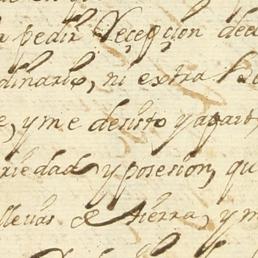 pedir Recepçion de
dinario, ni extra
e, y me desisto y apart
riedad y posesion, qu
lleuar de tierra, y m